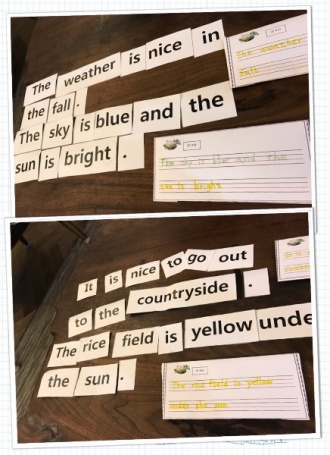 The weather is nice in
the fall.
The sky is blue and the
sun is bright.
The weather
fall.
The sky is blue and the
sun is bright
It is nice to go out
to the countryside.
The rice field is yellow unde
the sun.
The rice field is yellow
under the sun